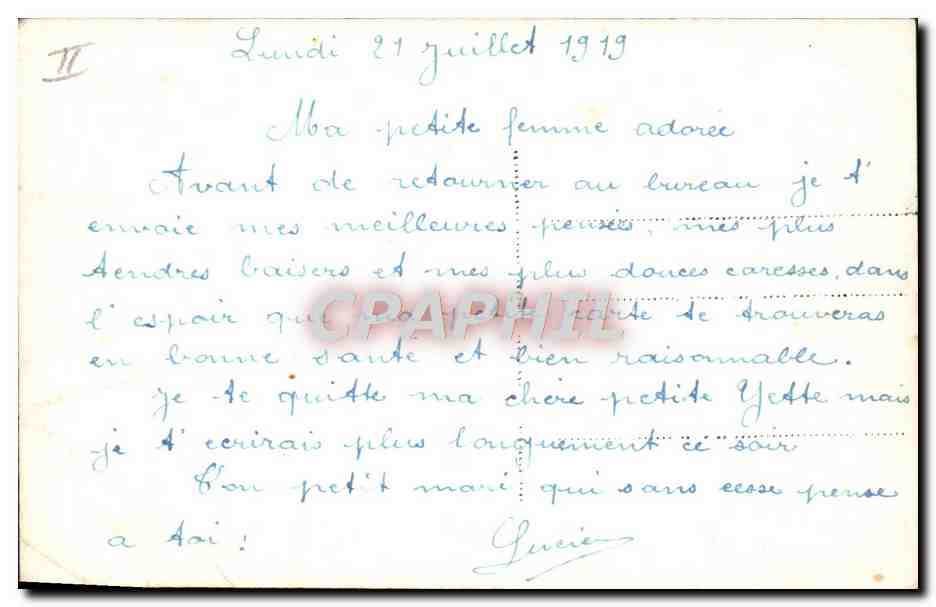 II
Lundi 21 Juillet 1919
Ma petite femme adorée
Avant de retourner au bureau je t'
envoie mes meilleures pensées, mes plus
tendres baisers et mes plus douces caresses, dans
l'espoir que ma petite carte te trouveras
en bonne santé et bien raisonnable.
Je te quitte ma chère petite Yette mais
je t'ecrirais plus longuement ce soir
Ton petit mari qui sans cesse pense
a toi!
Lucien
CPAPHIL